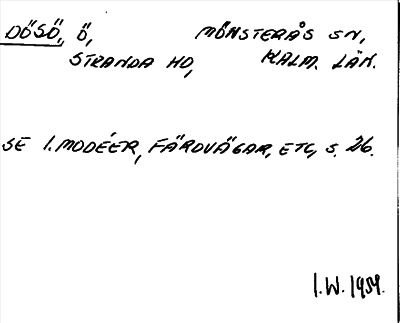 DÖSÖ, Ö, MÖNSTERÅS SN,
STRANDA HD, KALM. LÄN.
SE I. MODÉER, FÄRDVÄGAR, ETC, S. 26.
I.W. 1959.